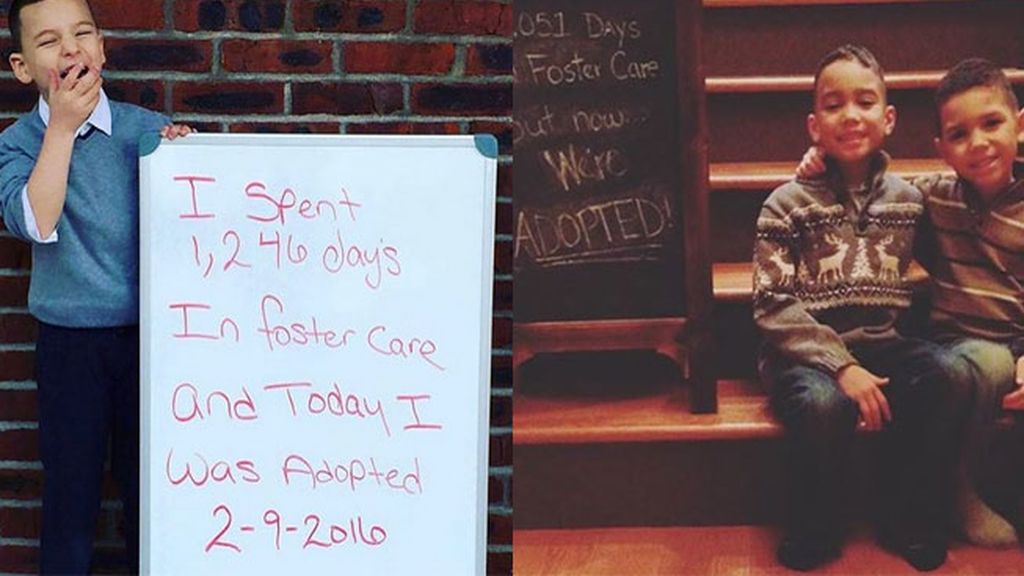 I Spent
1,246 days
In foster care
And Today I
Was Adopted
2-9-2016
051 Days
Foster Care
but now...
We're
ADOPTED!